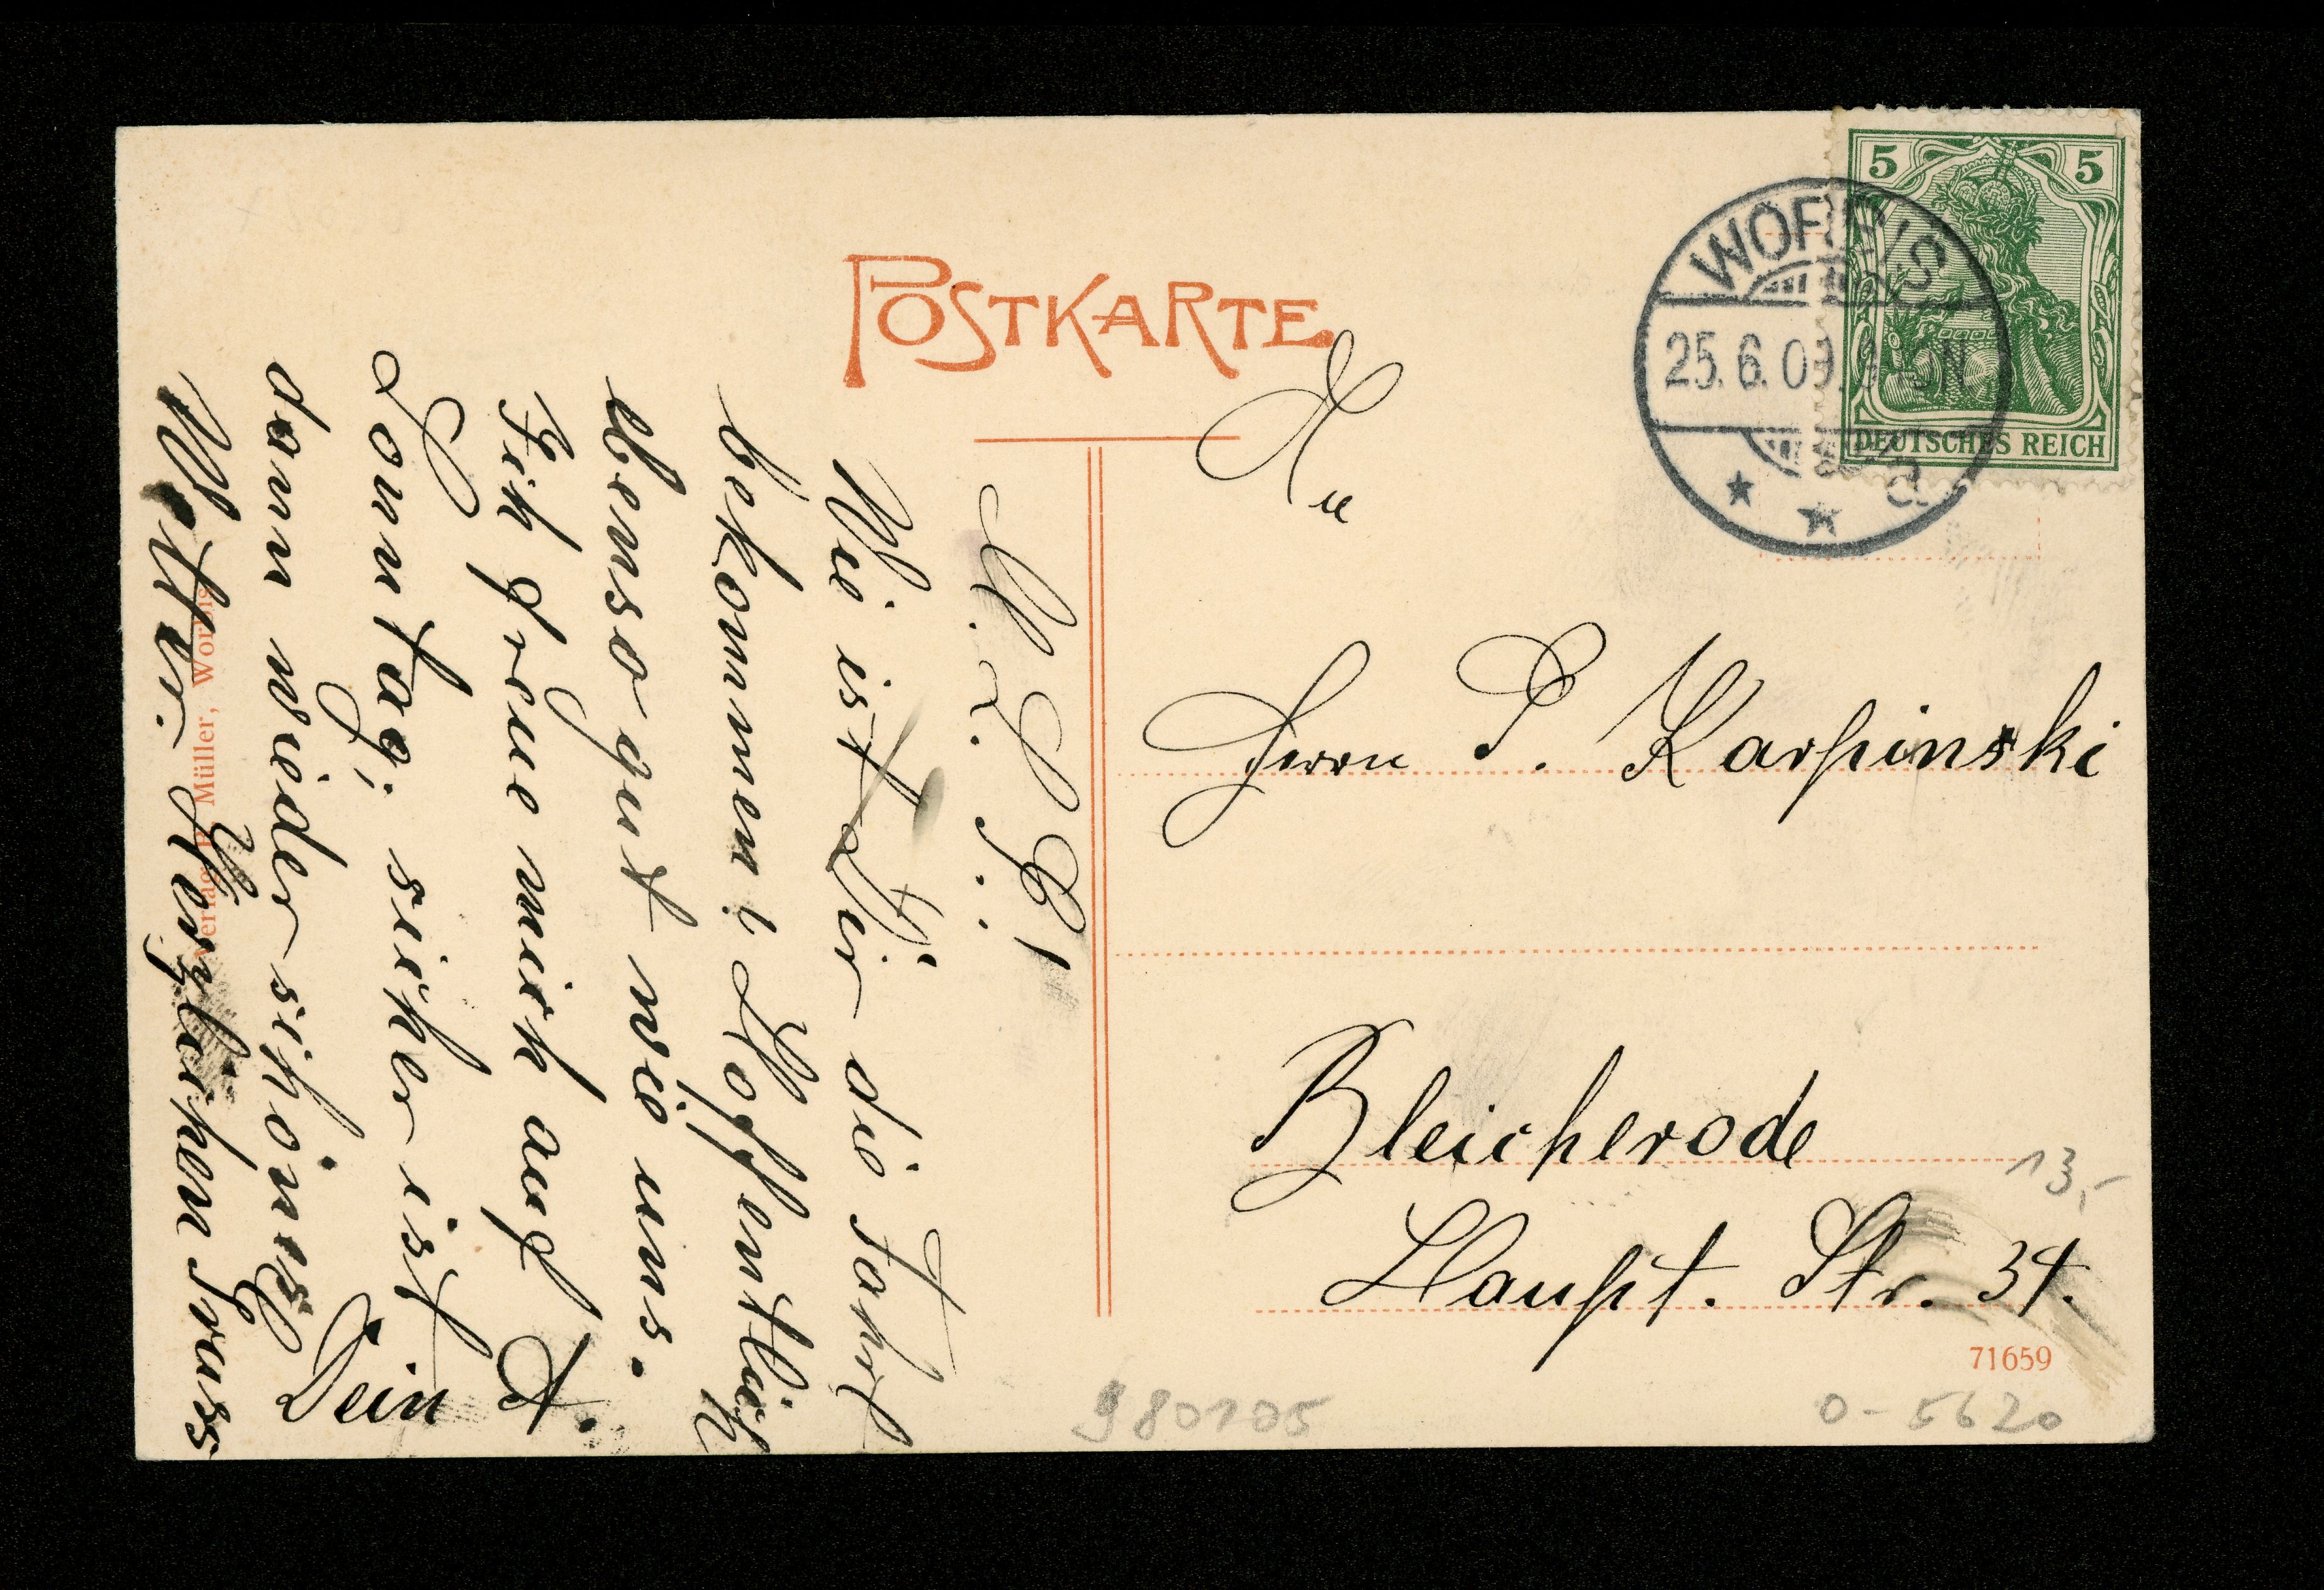 POSTKARTE
5 5
DEUTSCHES REICH
WORBIS
25.6.09. N
* * a
An
Herrn P. Karpinski
Bleicherode
Haupt. Str. 34.
M. L. P.!
Wie ist Dir die Fahrt
bekommen? Hoffentlich
ebenso gut wie uns.
Ich freue mich auf
Sonntag; sicher ist
dann wieder schönes
Wetter. Herzlichen Gruss
Dein A.
Verlag R. Müller, Worbis
71659
13,-
980105
0-5620